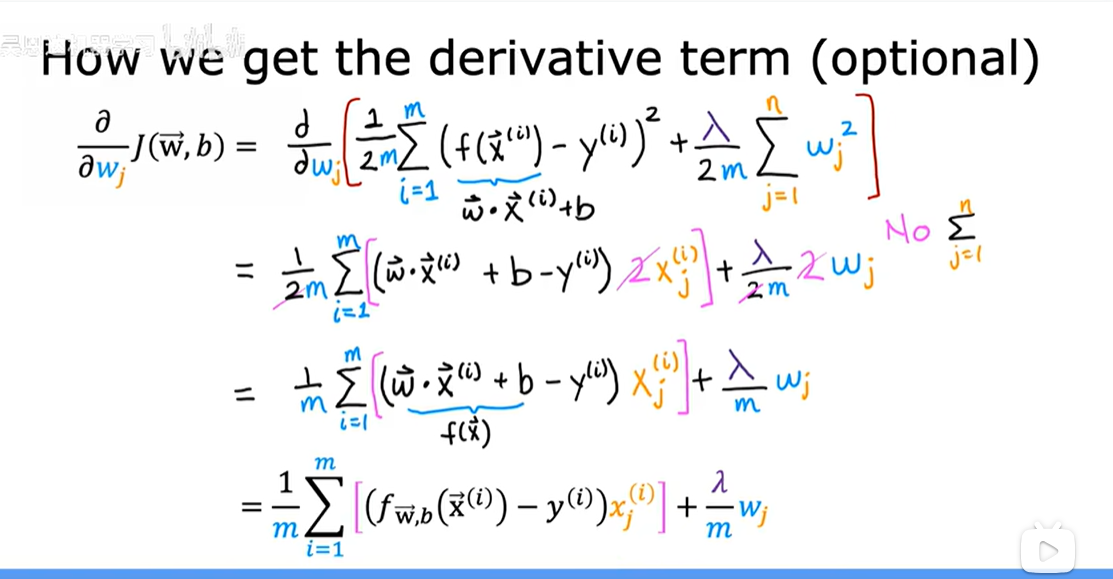 How we get the derivative term (optional)
∂/∂wⱼ J(w⃗,b) = ∂/∂wⱼ [ 1/2m Σᵢ₌₁ᵐ (f(x⃗⁽ⁱ⁾) - y⁽ⁱ⁾)² + λ/2m Σⱼ₌₁ⁿ wⱼ² ]
w⃗·x⃗⁽ⁱ⁾+b
= 1/2m Σᵢ₌₁ᵐ [(w⃗·x⃗⁽ⁱ⁾ + b - y⁽ⁱ⁾) 2xⱼ⁽ⁱ⁾] + λ/2m 2wⱼ No Σⱼ₌₁ⁿ
= 1/m Σᵢ₌₁ᵐ [(w⃗·x⃗⁽ⁱ⁾ + b - y⁽ⁱ⁾) xⱼ⁽ⁱ⁾] + λ/m wⱼ
f(x⃗)
= 1/m Σᵢ₌₁ᵐ [(f w⃗,b (x⃗⁽ⁱ⁾) − y⁽ⁱ⁾)xⱼ⁽ⁱ⁾] + λ/m wⱼ